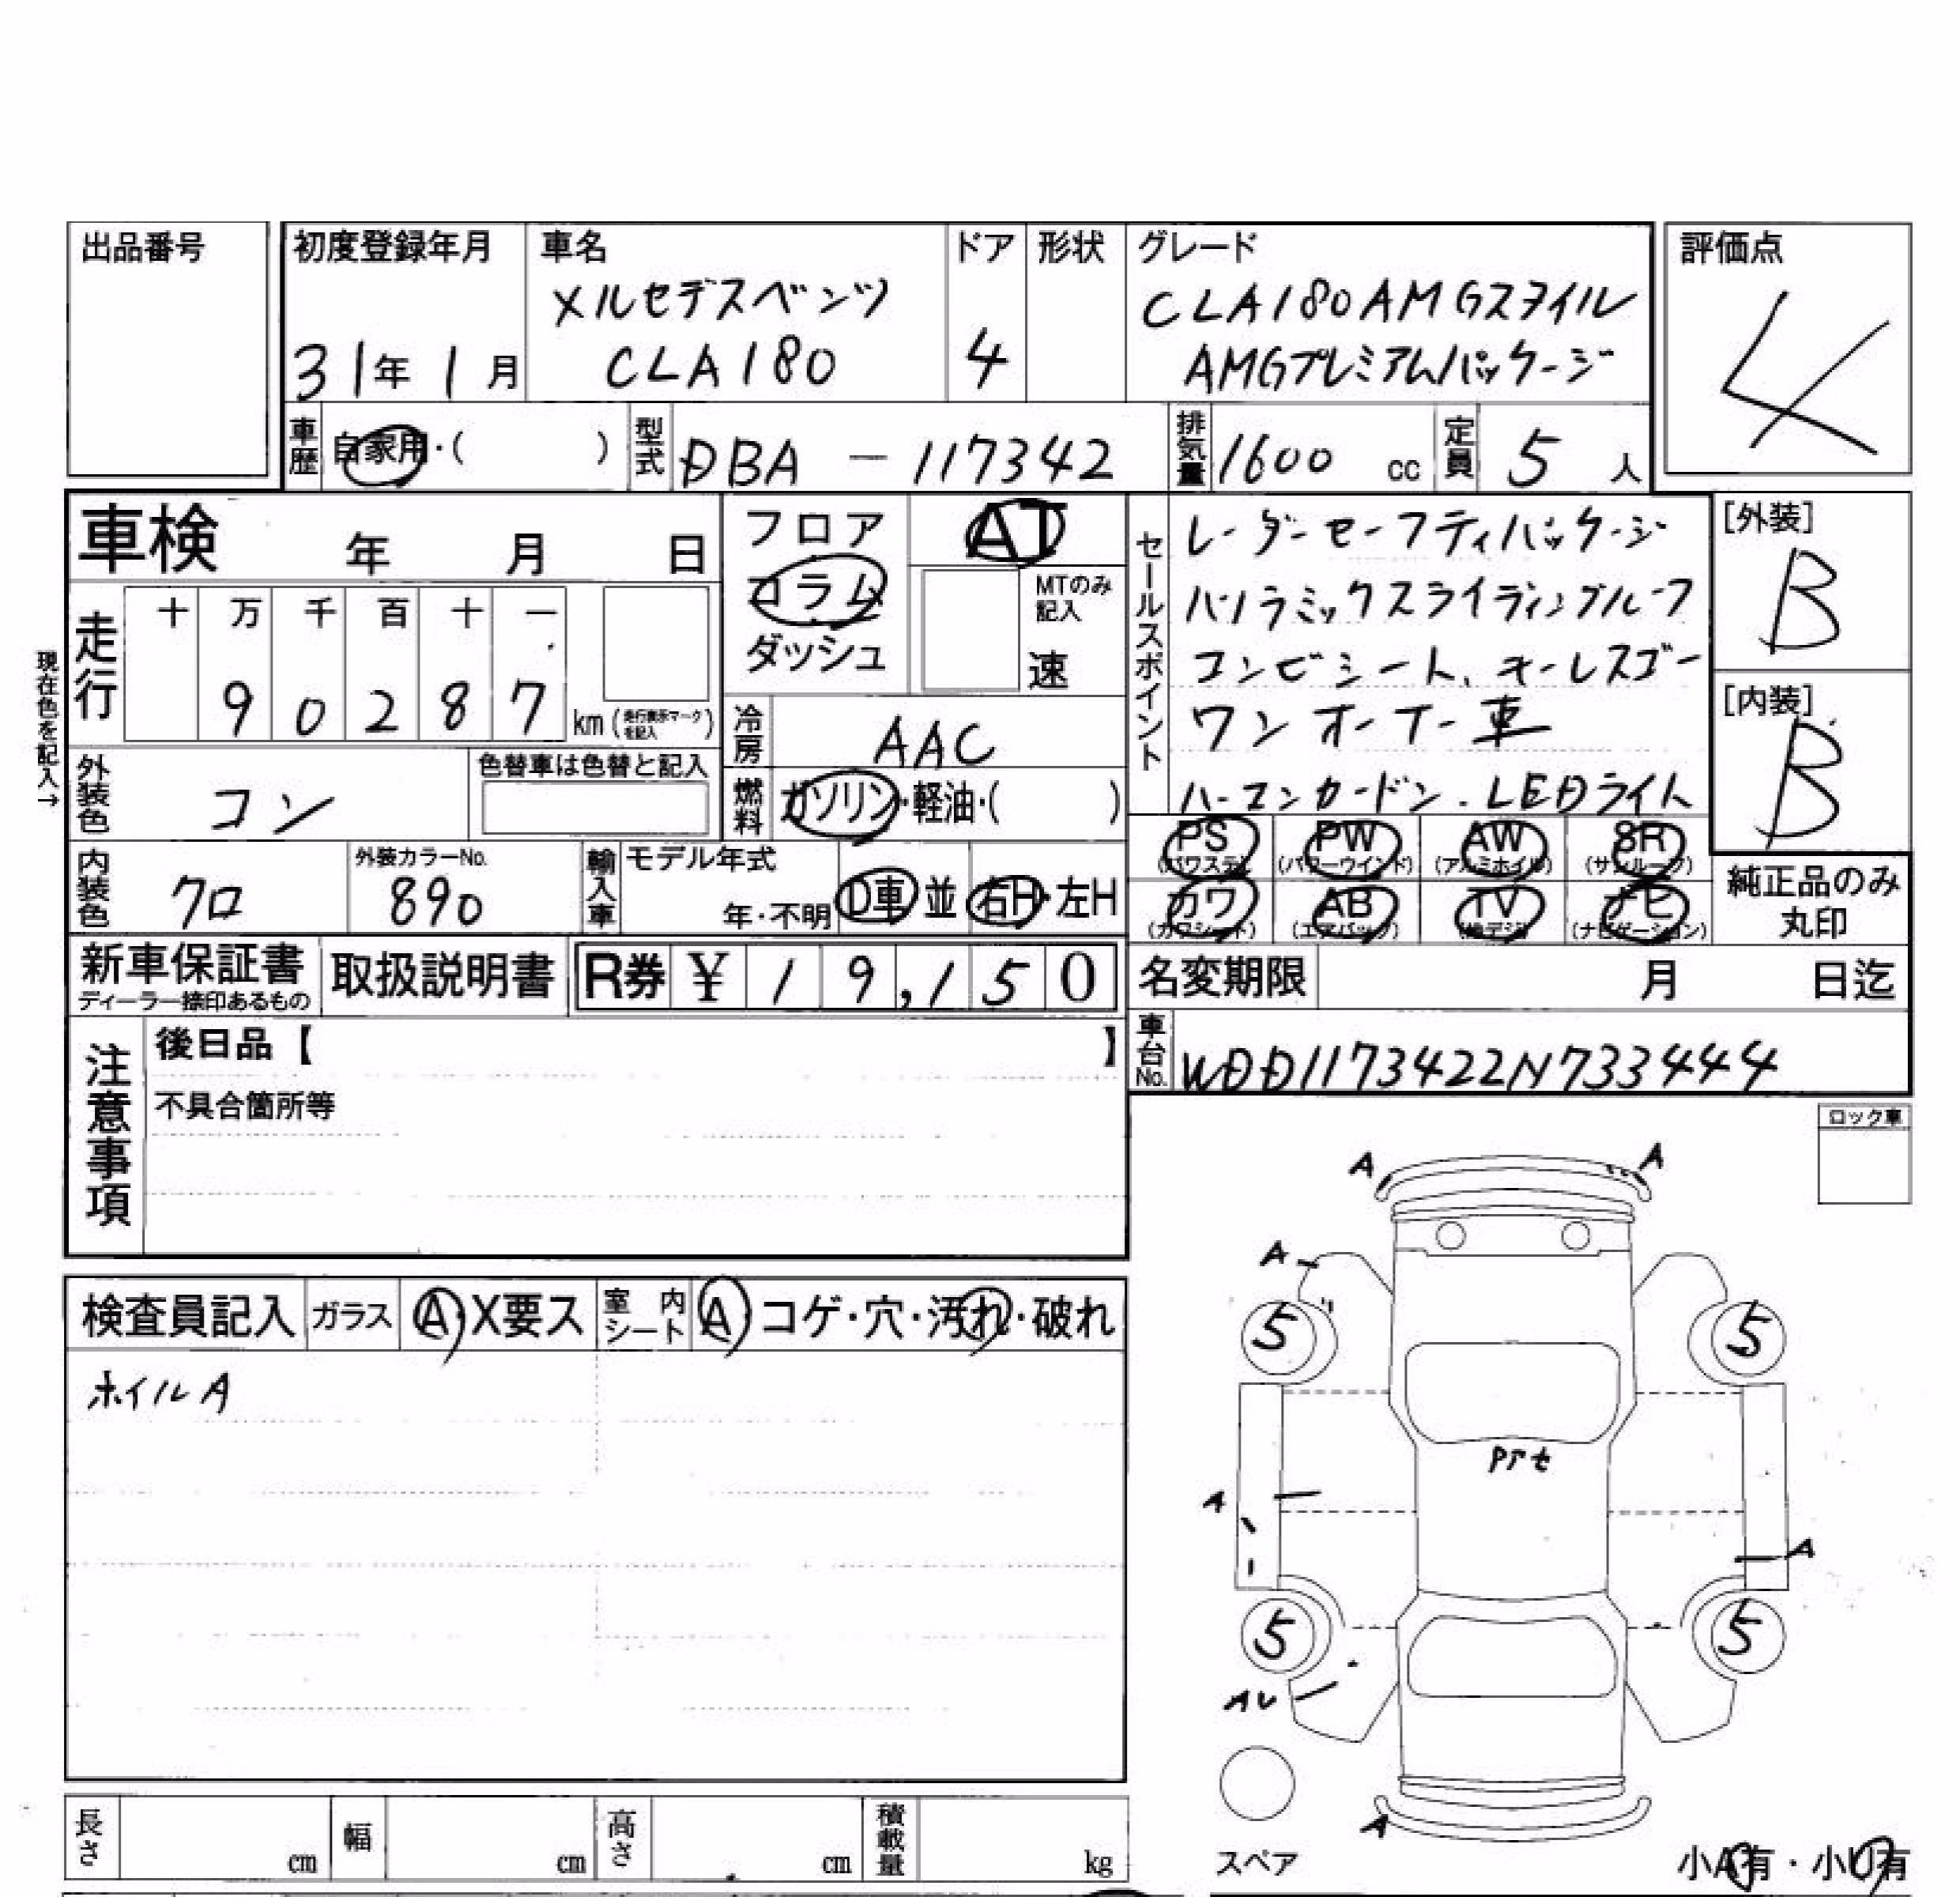 出品番号
初度登録年月
31年1月
車名
メルセデスベンツ
CLA180
ドア
4
形状
グレード
CLA180AMGスタイル
AMGプレミアムパッケージ
評価点
4
車歴
自家用・( )
型式
DBA - 117342
排気量
1600 cc
定員
5 人
車検 年 月 日
フロア
コラム
ダッシュ
AT
MTのみ
記入
速
セールスポイント
レーダーセーフティパッケージ
パノラミックスライディングルーフ
コンビシート、キーレスゴー
ワンオーナー車
ハーマンカードン.LEDライト
[外装]
B
[内装]
B
現在色を記入→
走行
十 万 千 百 十 一
9 0 2 8 7 km (走行表示マークを記入)
冷房
AAC
外装色
コン
色替車は色替と記入
燃料
ガソリン・軽油・( )
内装色
クロ
外装カラーNo.
890
輸入車
モデル年式
年・不明
D車 並
右H・左H
PS
(パワステ)
PW
(パワーウインド)
AW
(アルミホイル)
SR
(サンルーフ)
カワ
(カワシート)
AB
(エアバック)
TV
(地デジ)
ナビ
(ナビゲーション)
純正品のみ
丸印
新車保証書
ディーラー捺印あるもの
取扱説明書
R券 ¥ 1 9,1 5 0
名変期限 月 日迄
車台No.
WDD1173422N733444
注意事項
後日品【 】
不具合箇所等
ロック車
検査員記入
ガラス
A X要ス
室内シート
A コゲ・穴・汚れ・破れ
ホイルA
A
A
A
5
5
A
A
5
5
AU
A
スペア
小A有・小U有
長さ cm
幅 cm
高さ cm
積載量 kg